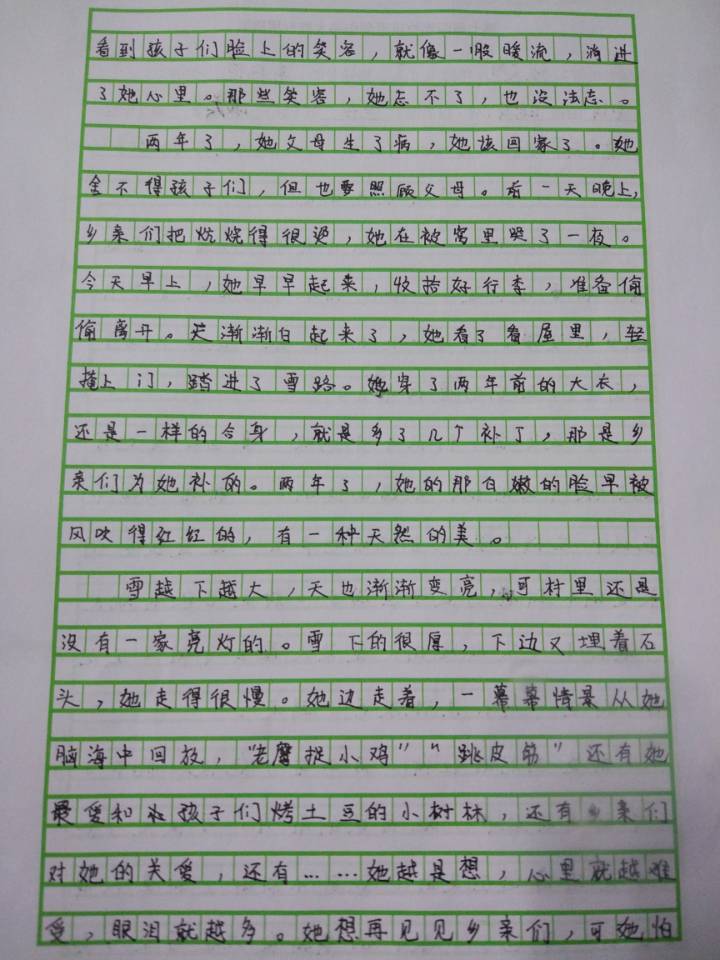 看到孩子们脸上的笑容，就像一股暖流，淌进
了她心里。那些笑容，她忘不了，也没法忘。
两年了，她父母生了病，她该回家了。她
舍不得孩子们，但也要照顾父母。前一天晚上，
乡亲们把炕烧得很烫，她在被窝里哭了一夜。
今天早上，她早早起来，收拾好行李，准备偷
偷离开。天渐渐白起来了，她看了看屋里，轻
掩上门，踏进了雪路。她穿了两年前的大衣，
还是一样的合身，就是多了几个补丁，那是乡
亲们为她补的。两年了，她的那白嫩的脸早被
风吹得红红的，有一种天然的美。
雪越下越大，天也渐渐变亮，可村里还是
没有一家亮灯的。雪下的很厚，下边又埋着石
头，她走得很慢。她边走着，一幕幕情景从她
脑海中回放，“老鹰捉小鸡”“跳皮筋”还有她
最爱和孩子们烤土豆的小树林，还有乡亲们
对她的关爱，还有……她越是想，心里就越难
受，眼泪就越多。她想再见见乡亲们，可她怕